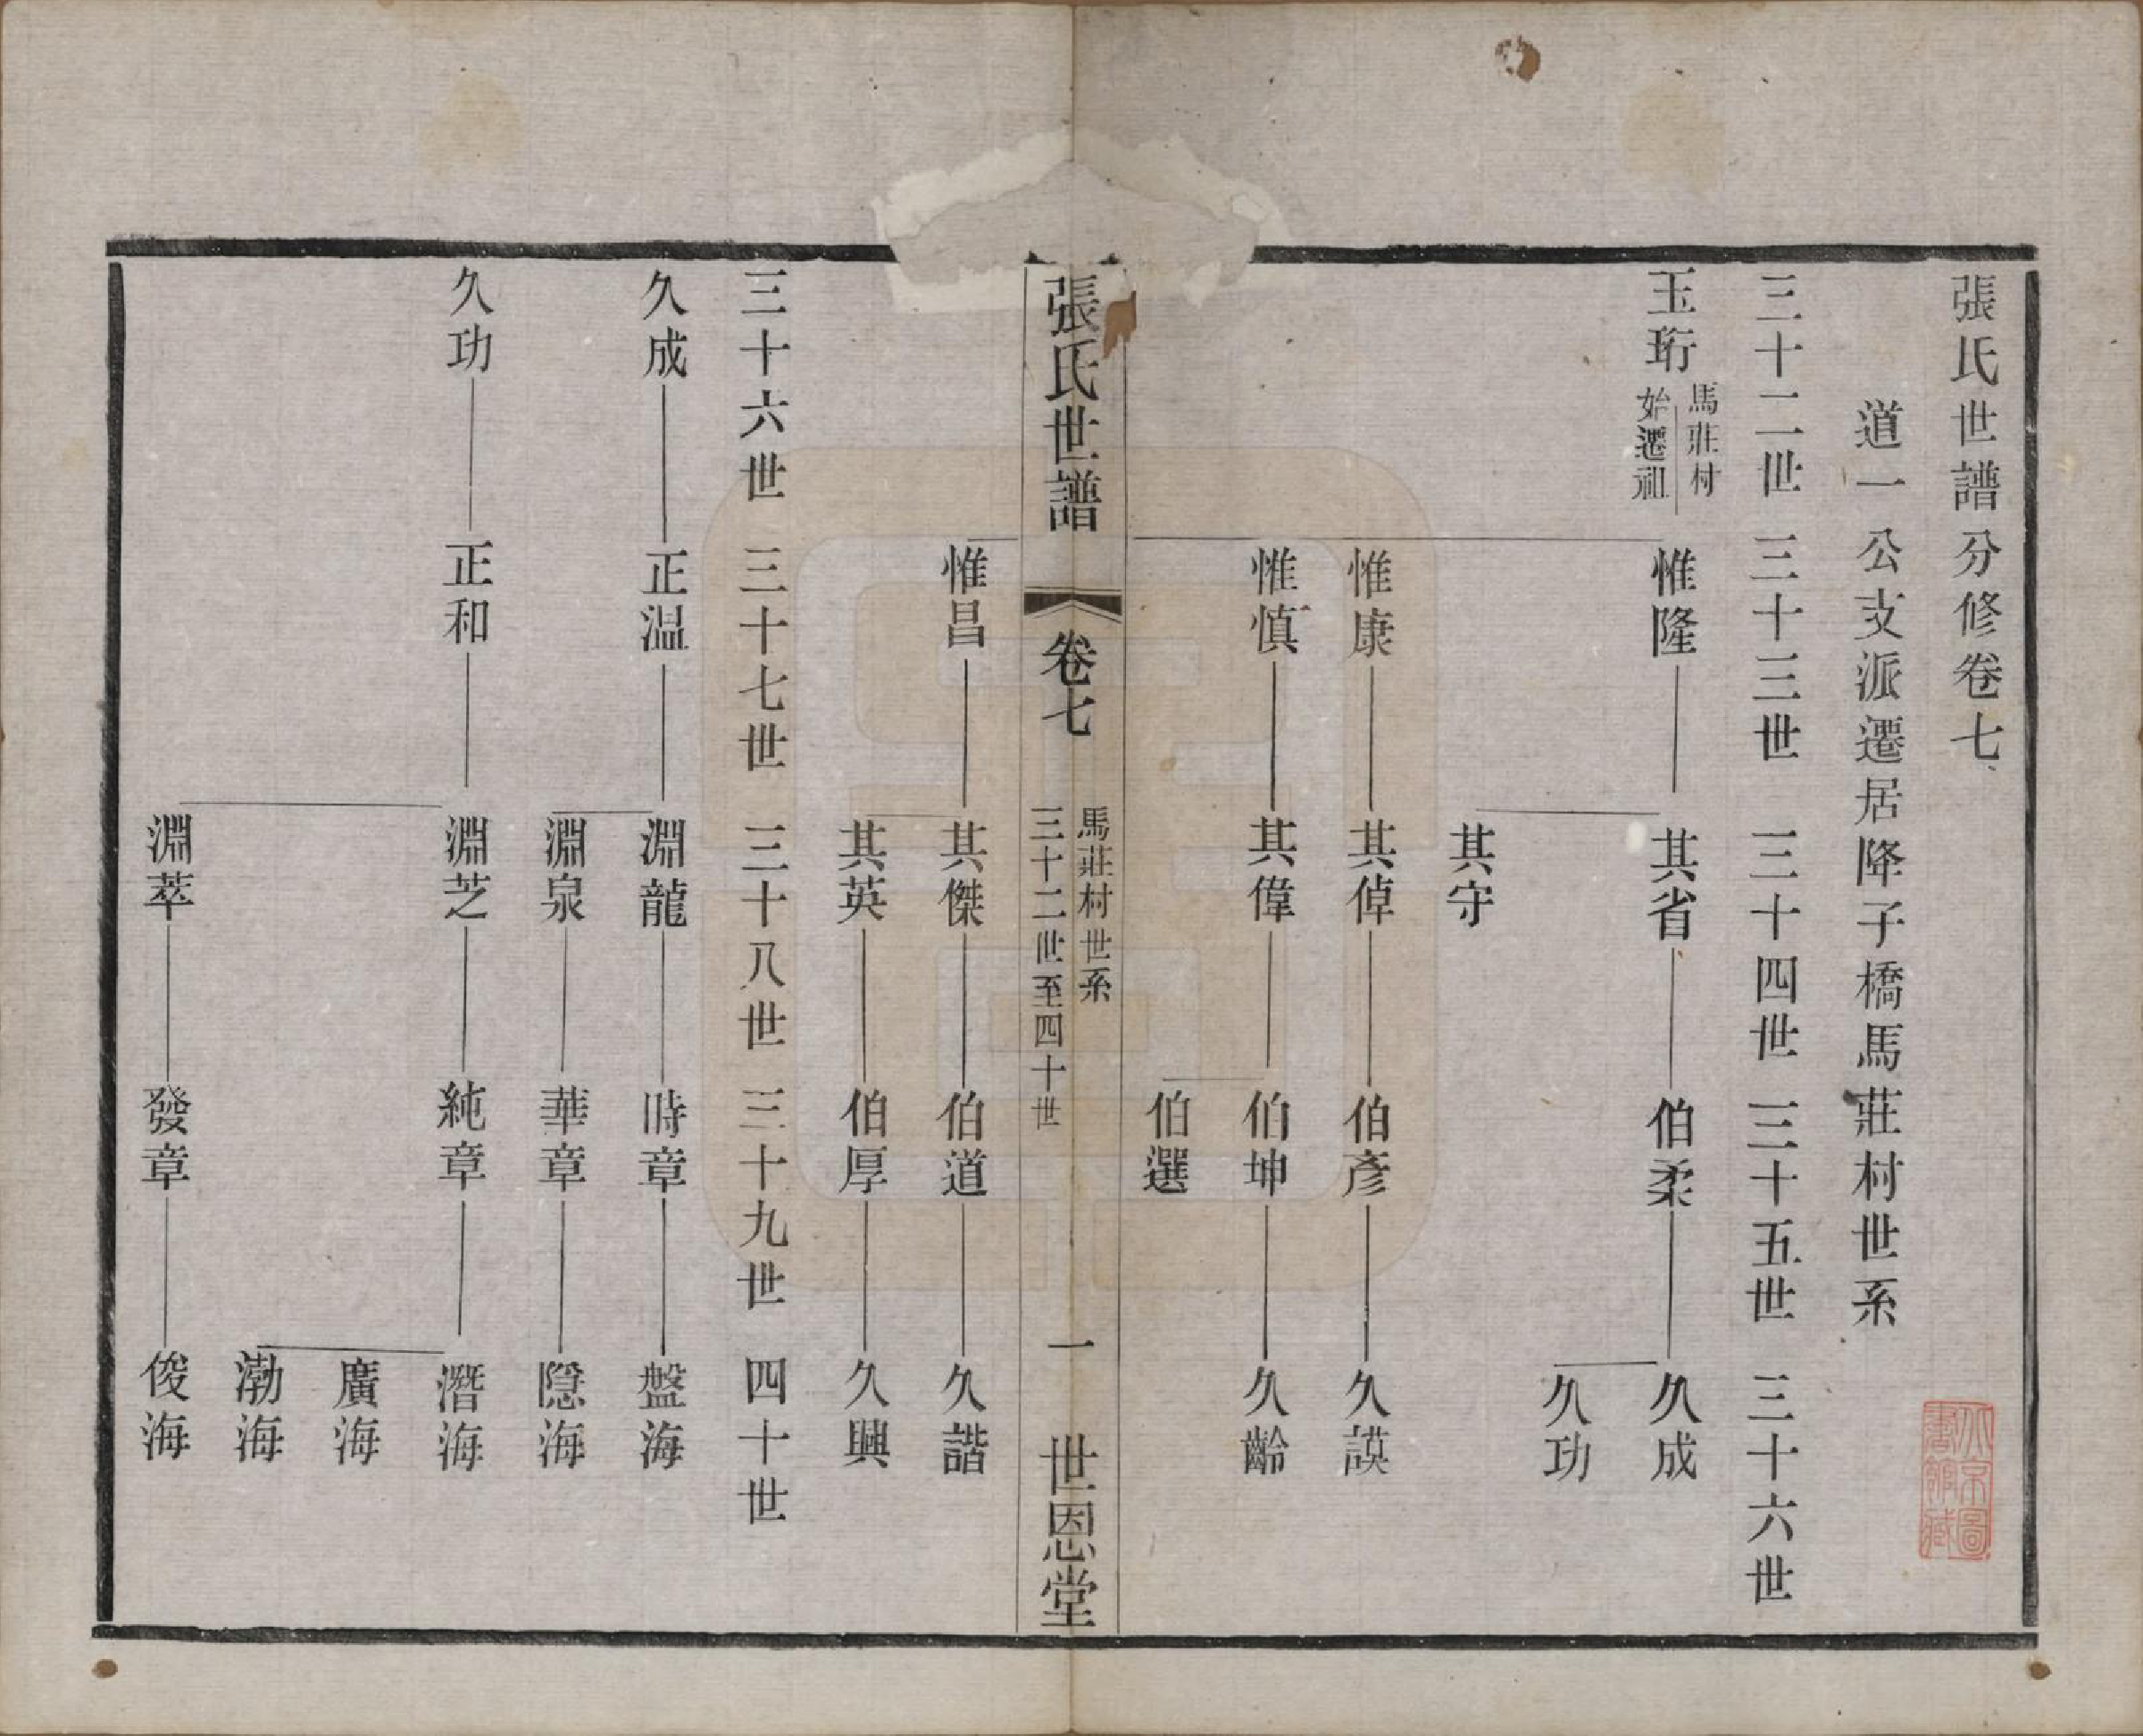 張氏世譜分修卷七
道一公支派遷居降子橋馬莊村世系
三十二世 三十三世 三十四世 三十五世 三十六世
玉珩 馬莊村始遷祖 惟隆 其省 伯柔 久成
久功
其守
惟康 其倬 伯彥 久謨
惟慎 其偉 伯坤 久齡
伯選
張氏世譜 卷七 馬莊村世系 三十二世至四十世 一 世恩堂
惟昌 其傑 伯道 久諧
其英 伯厚 久興
三十六世 三十七世 三十八世 三十九世 四十世
久成 正温 淵龍 時章 盤海
淵泉 華章 隱海
久功 正和 淵芝 純章 潛海
廣海
渤海
淵萃 發章 俊海
北京圖書館藏